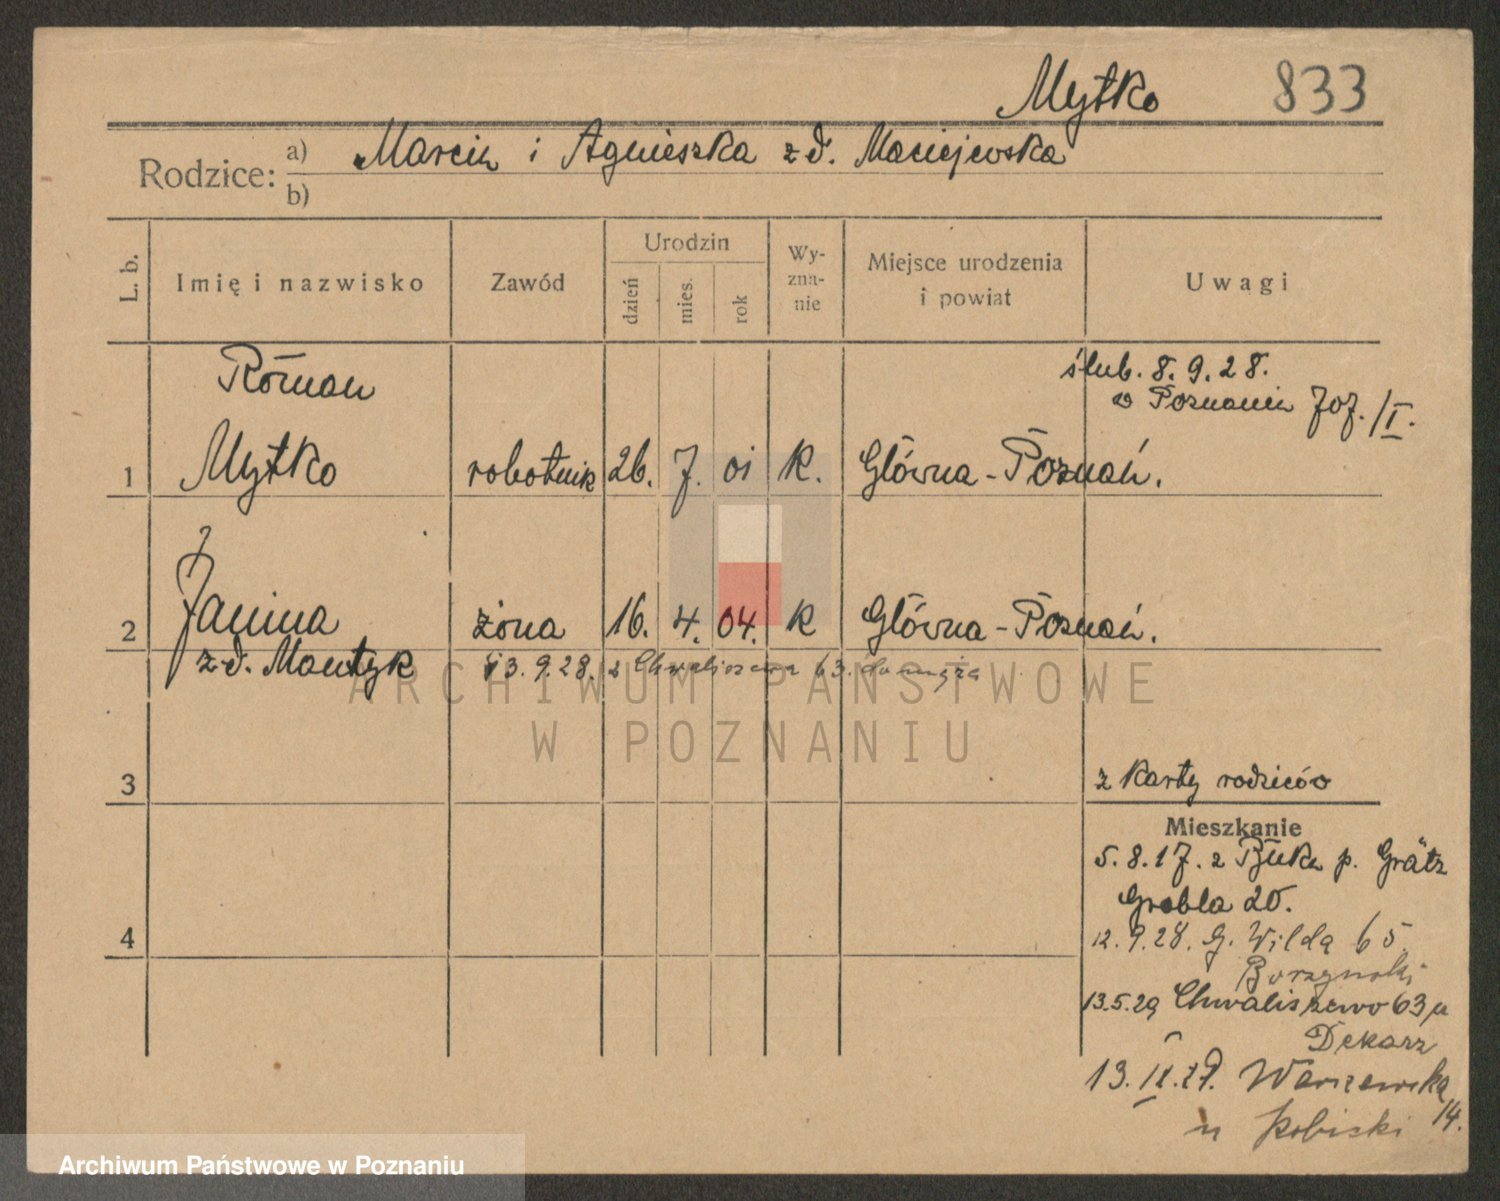 Mytko 833
Rodzice: a) Marcin i Agnieszka z d. Maciejewska
b)
L. b. Imię i nazwisko Zawód Urodzin dzień mies. rok Wyzna-nie Miejsce urodzenia i powiat Uwagi
ślub. 8. 9. 28.
w Poznaniu 707./I.
Roman
1 Mytko robotnik 26. 7. 01 k. Główna - Poznań.
2 Janina żona 16. 4. 04. k Główna - Poznań.
z d. Mantyk 13. 9. 28. z Chwaliszewa 63. do męża
3 z karty rodziców
Mieszkanie
5. 8. 17. z Buku p. Grätz
Grobla 20.
4 12. 9. 28. G. Wilda 65
13.5.29 Chwaliszewo 63 u
Dekarz
13. II. Warszawska 14.
u
ARCHIWUM PAŃSTWOWE
W POZNANIU
Archiwum Państwowe w Poznaniu